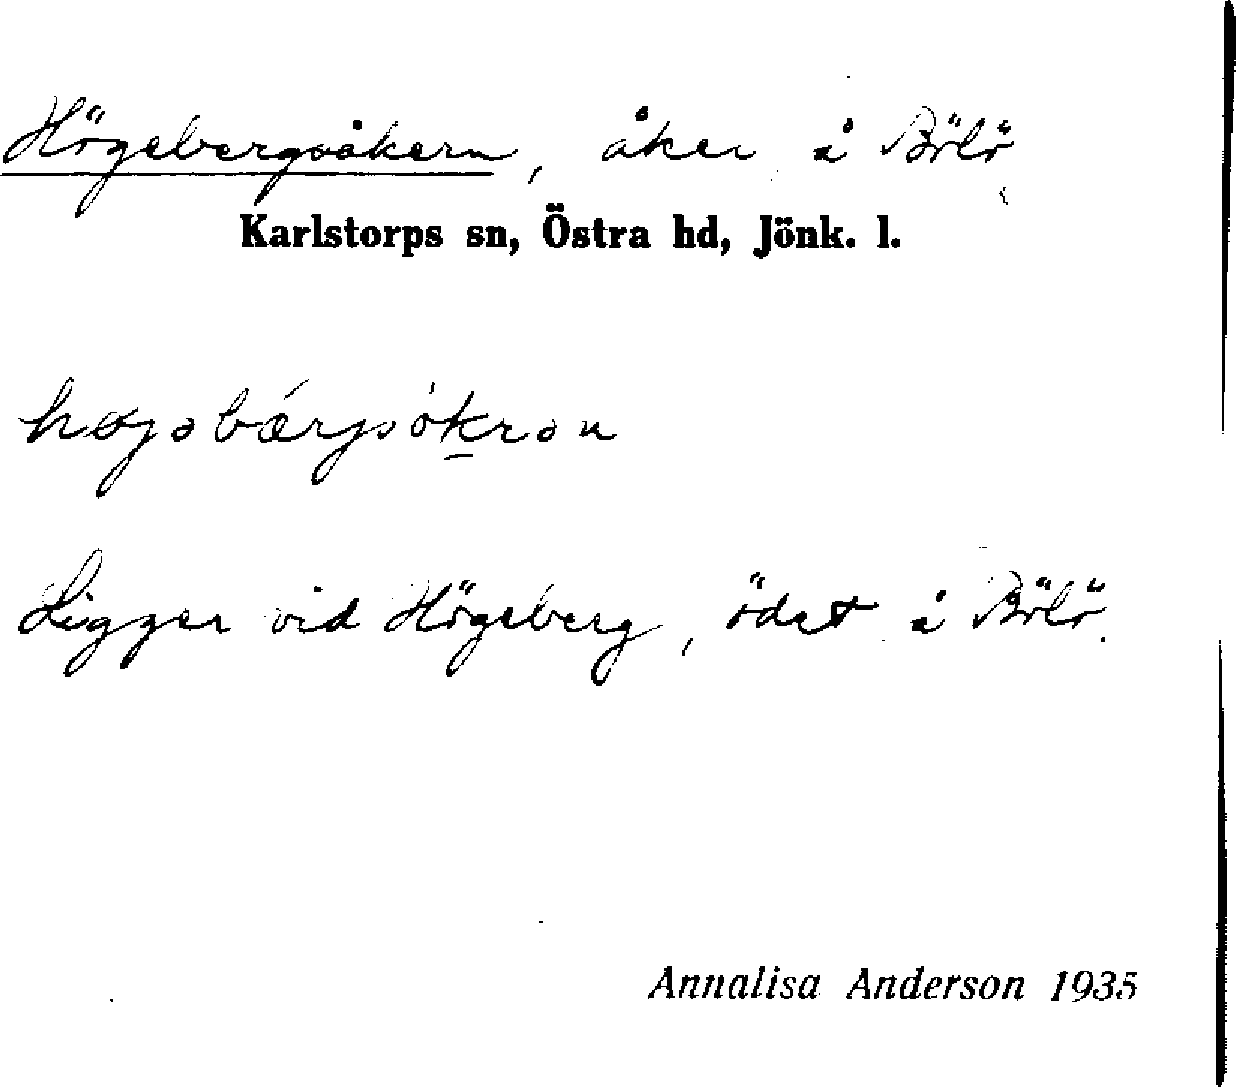 Högebergsåkern, åker å Bölö
Karlstorps sn, Östra hd, Jönk. l.
høgəbǽrjsòkrən
Ligger vid Högeberg, ödet å Bölö.
Annalisa Anderson 1935